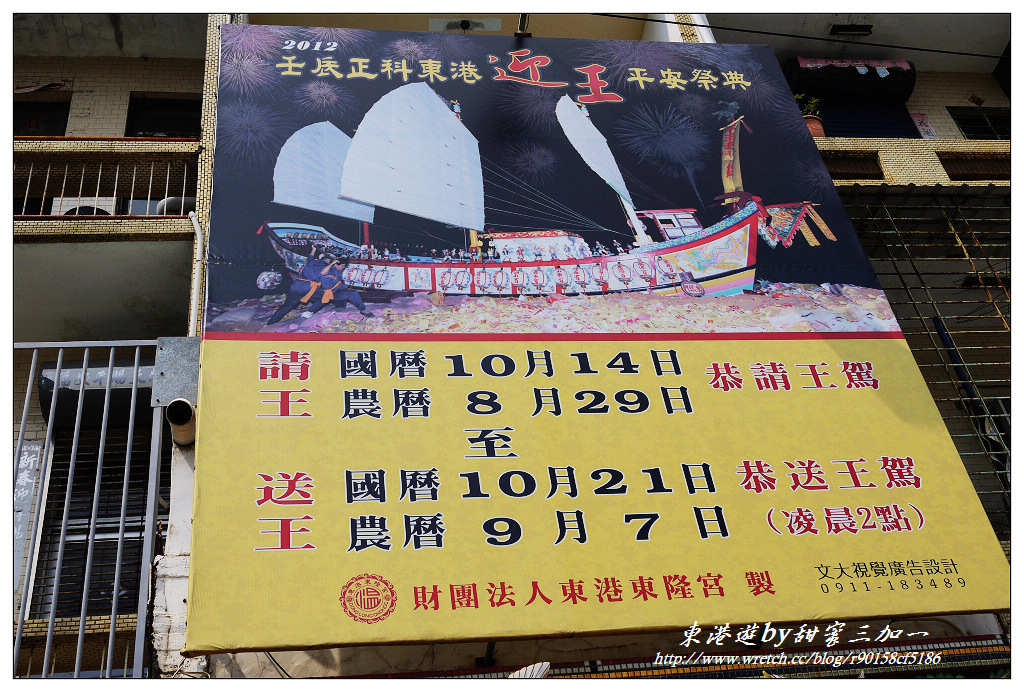 2012
壬辰正科東港迎王平安祭典
請王 國曆10月14日 恭請王駕
農曆 8 月29日
至
送王 國曆10月21日 恭送王駕
農曆 9 月 7 日 (凌晨2點)
財團法人東港東隆宮 製
文大視覺廣告設計
0911-183489
新春
東港遊by甜蜜三加一
http://www.wretch.cc/blog/r90158cf5186